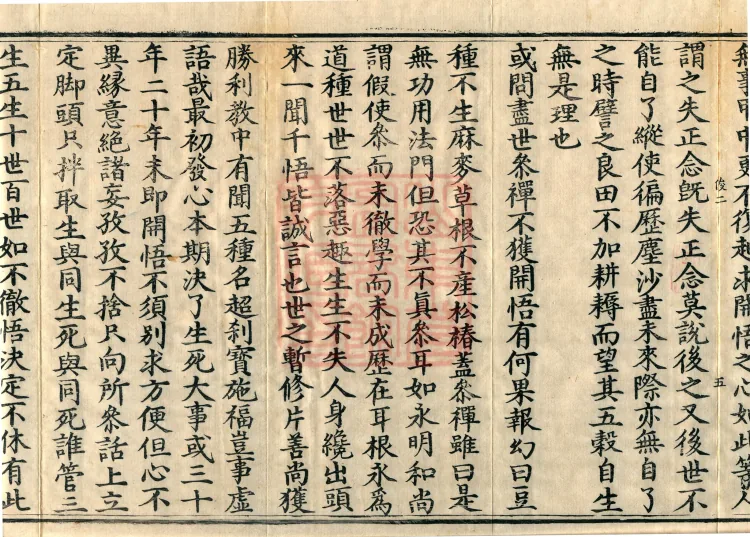 無事甲中更不復起求開悟之心如此等人
俊二 五
謂之失正念旣失正念莫說後之又後世不
能自了縱使徧歷塵沙盡未來際亦無自了
之時譬之良田不加耕耨而望其五穀自生
無是理也
或問盡世叅禪不獲開悟有何果報幻曰豆
種不生麻麥草根不產松椿蓋叅禪雖曰是
無功用法門但恐其不眞叅耳如永明和尚
謂假使叅而未徹學而未成歷在耳根永爲
道種世世不落惡趣生生不失人身纔出頭
來一聞千悟皆誠言也世之暫修片善尚獲
勝利教中有聞五種名超刹寶施福豈事虛
語哉最初發心本期決了生死大事或三十
年二十年未即開悟不須別求方便但心不
異緣意絕諸妄孜孜不捨只向所叅話上立
定脚頭只拌取生與同生死與同死誰管三
生五生十世百世如不徹悟決定不休有此